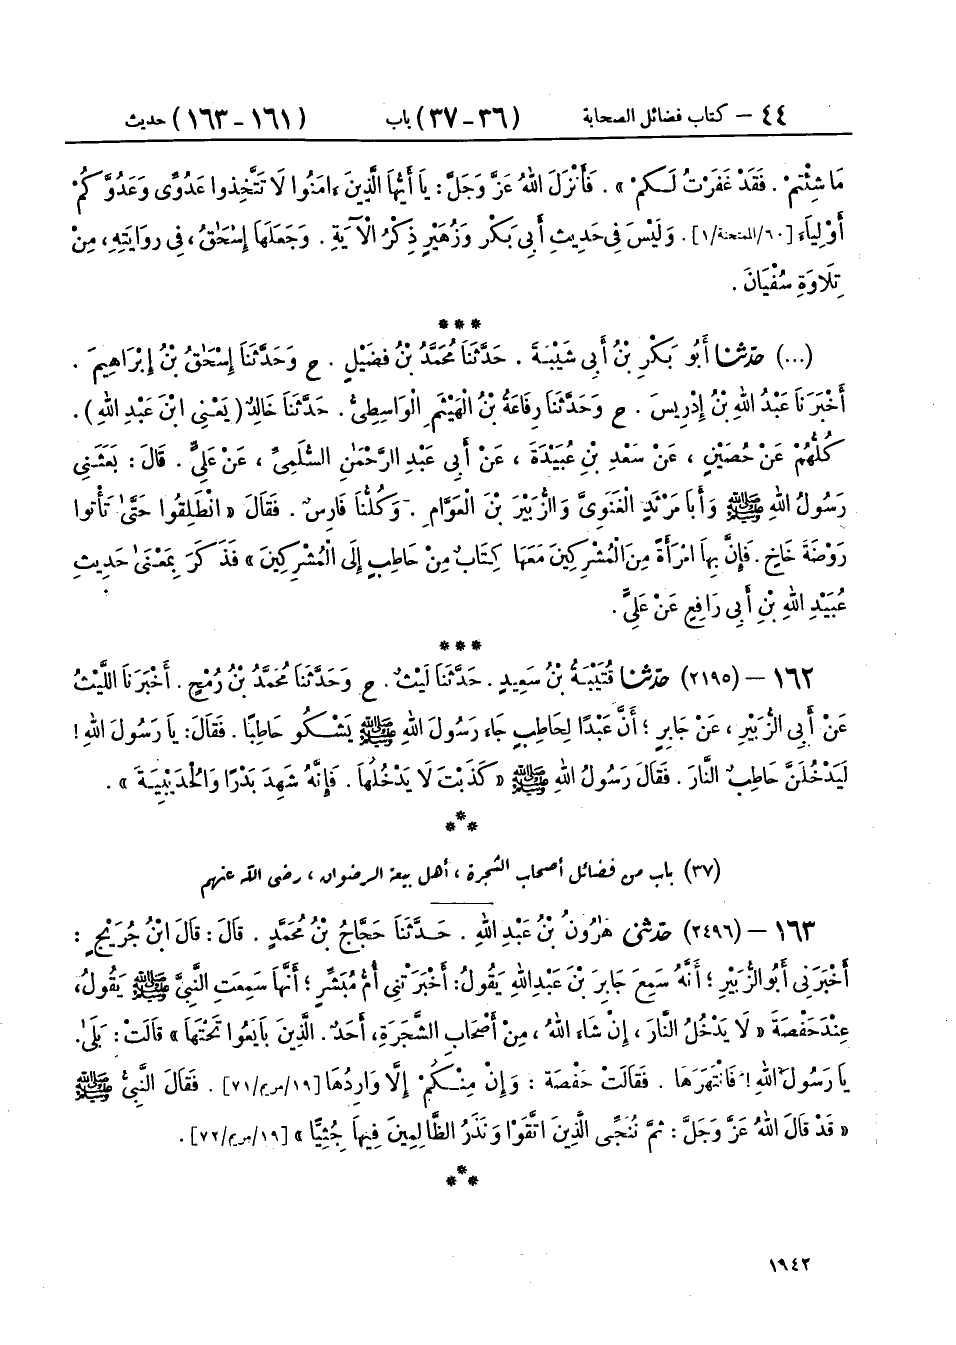 ٤٤ – كتاب فضائل الصحابة (٣٦ – ٣٧) باب (١٦١ – ١٦٣) حديث
مَا شِئْتُمْ . فَقَدْ غَفَرْتُ لَكُمْ » . فَأَنْزَلَ اللهُ عَزَّ وَجَلَّ : يَا أَيُّهَا الَّذِينَ ءَامَنُوا لَا تَتَّخِذُوا عَدُوِّى وَعَدُوَّكُمْ
أَوْلِيَاءَ [٦٠/الممتحنة/١] . وَلَيْسَ فِى حَدِيثِ أَبِى بَكْرٍ وَزُهَيْرٍ ذِكْرُ الْآيَةِ . وَجَعَلَهَا إِسْحَاقُ ، فِى رِوَايَتِهِ ، مِنْ
تِلَاوَةِ سُفْيَانَ .
***
(...) حَدَّثَنَا أَبُو بَكْرِ بْنُ أَبِى شَيْبَةَ . حَدَّثَنَا مُحَمَّدُ بْنُ فُضَيْلٍ . ح وَحَدَّثَنَا إِسْحَاقُ بْنُ إِبْرَاهِيمَ .
أَخْبَرَنَا عَبْدُ اللهِ بْنُ إِدْرِيسَ . ح وَحَدَّثَنَا رِفَاعَةُ بْنُ الْهَيْثَمِ الْوَاسِطِىُّ . حَدَّثَنَا خَالِدٌ ( يَعْنِى ابْنَ عَبْدِ اللهِ ) .
كُلُّهُمْ عَنْ حُصَيْنٍ ، عَنْ سَعْدِ بْنِ عُبَيْدَةَ ، عَنْ أَبِى عَبْدِ الرَّحْمَٰنِ السُّلَمِىِّ ، عَنْ عَلِىٍّ . قَالَ : بَعَثَنِى
رَسُولُ اللهِ ﷺ وَأَبَا مَرْثَدٍ الْغَنَوِىَّ وَالزُّبَيْرَ بْنَ الْعَوَّامِ . وَكُلُّنَا فَارِسٌ . فَقَالَ « انْطَلِقُوا حَتَّىٰ تَأْتُوا
رَوْضَةَ خَاخٍ . فَإِنَّ بِهَا امْرَأَةً مِنَ الْمُشْرِكِينَ مَعَهَا كِتَابٌ مِنْ حَاطِبٍ إِلَى الْمُشْرِكِينَ » فَذَكَرَ بِمَعْنَىٰ حَدِيثِ
عُبَيْدِ اللهِ بْنِ أَبِى رَافِعٍ عَنْ عَلِىٍّ .
***
١٦٢ – (٢١٩٥) حَدَّثَنَا قُتَيْبَةُ بْنُ سَعِيدٍ . حَدَّثَنَا لَيْثٌ . ح وَحَدَّثَنَا مُحَمَّدُ بْنُ رُمْحٍ . أَخْبَرَنَا اللَّيْثُ
عَنْ أَبِى الزُّبَيْرِ ، عَنْ جَابِرٍ ؛ أَنَّ عَبْدًا لِحَاطِبٍ جَاءَ رَسُولَ اللهِ ﷺ يَشْكُو حَاطِبًا . فَقَالَ : يَا رَسُولَ اللهِ !
لَيَدْخُلَنَّ حَاطِبٌ النَّارَ . فَقَالَ رَسُولُ اللهِ ﷺ « كَذَبْتَ لَا يَدْخُلُهَا . فَإِنَّهُ شَهِدَ بَدْرًا وَالْحُدَيْبِيَةَ » .
***
(٣٧) باب من فضائل أصحاب الشجرة ، أهل بيعة الرضوان ، رضى الله عنهم
١٦٣ – (٢٤٩٦) حَدَّثَنِى هَٰرُونُ بْنُ عَبْدِ اللهِ . حَدَّثَنَا حَجَّاجُ بْنُ مُحَمَّدٍ . قَالَ : قَالَ ابْنُ جُرَيْجٍ :
أَخْبَرَنِى أَبُو الزُّبَيْرِ ؛ أَنَّهُ سَمِعَ جَابِرَ بْنَ عَبْدِ اللهِ يَقُولُ : أَخْبَرَتْنِى أُمُّ مُبَشِّرٍ ؛ أَنَّهَا سَمِعَتِ النَّبِىَّ ﷺ يَقُولُ ،
عِنْدَ حَفْصَةَ « لَا يَدْخُلُ النَّارَ ، إِنْ شَاءَ اللهُ ، مِنْ أَصْحَابِ الشَّجَرَةِ ، أَحَدٌ . الَّذِينَ بَايَعُوا تَحْتَهَا » قَالَتْ : بَلَىٰ .
يَا رَسُولَ اللهِ ! فَانْتَهَرَهَا . فَقَالَتْ حَفْصَةُ : وَإِنْ مِنْكُمْ إِلَّا وَارِدُهَا [١٩/مريم/٧١] . فَقَالَ النَّبِىُّ ﷺ
« قَدْ قَالَ اللهُ عَزَّ وَجَلَّ : ثُمَّ نُنَجِّى الَّذِينَ اتَّقَوْا وَنَذَرُ الظَّالِمِينَ فِيهَا جُثِيًّا » [١٩/مريم/٧٢] .
***
١٩٤٢